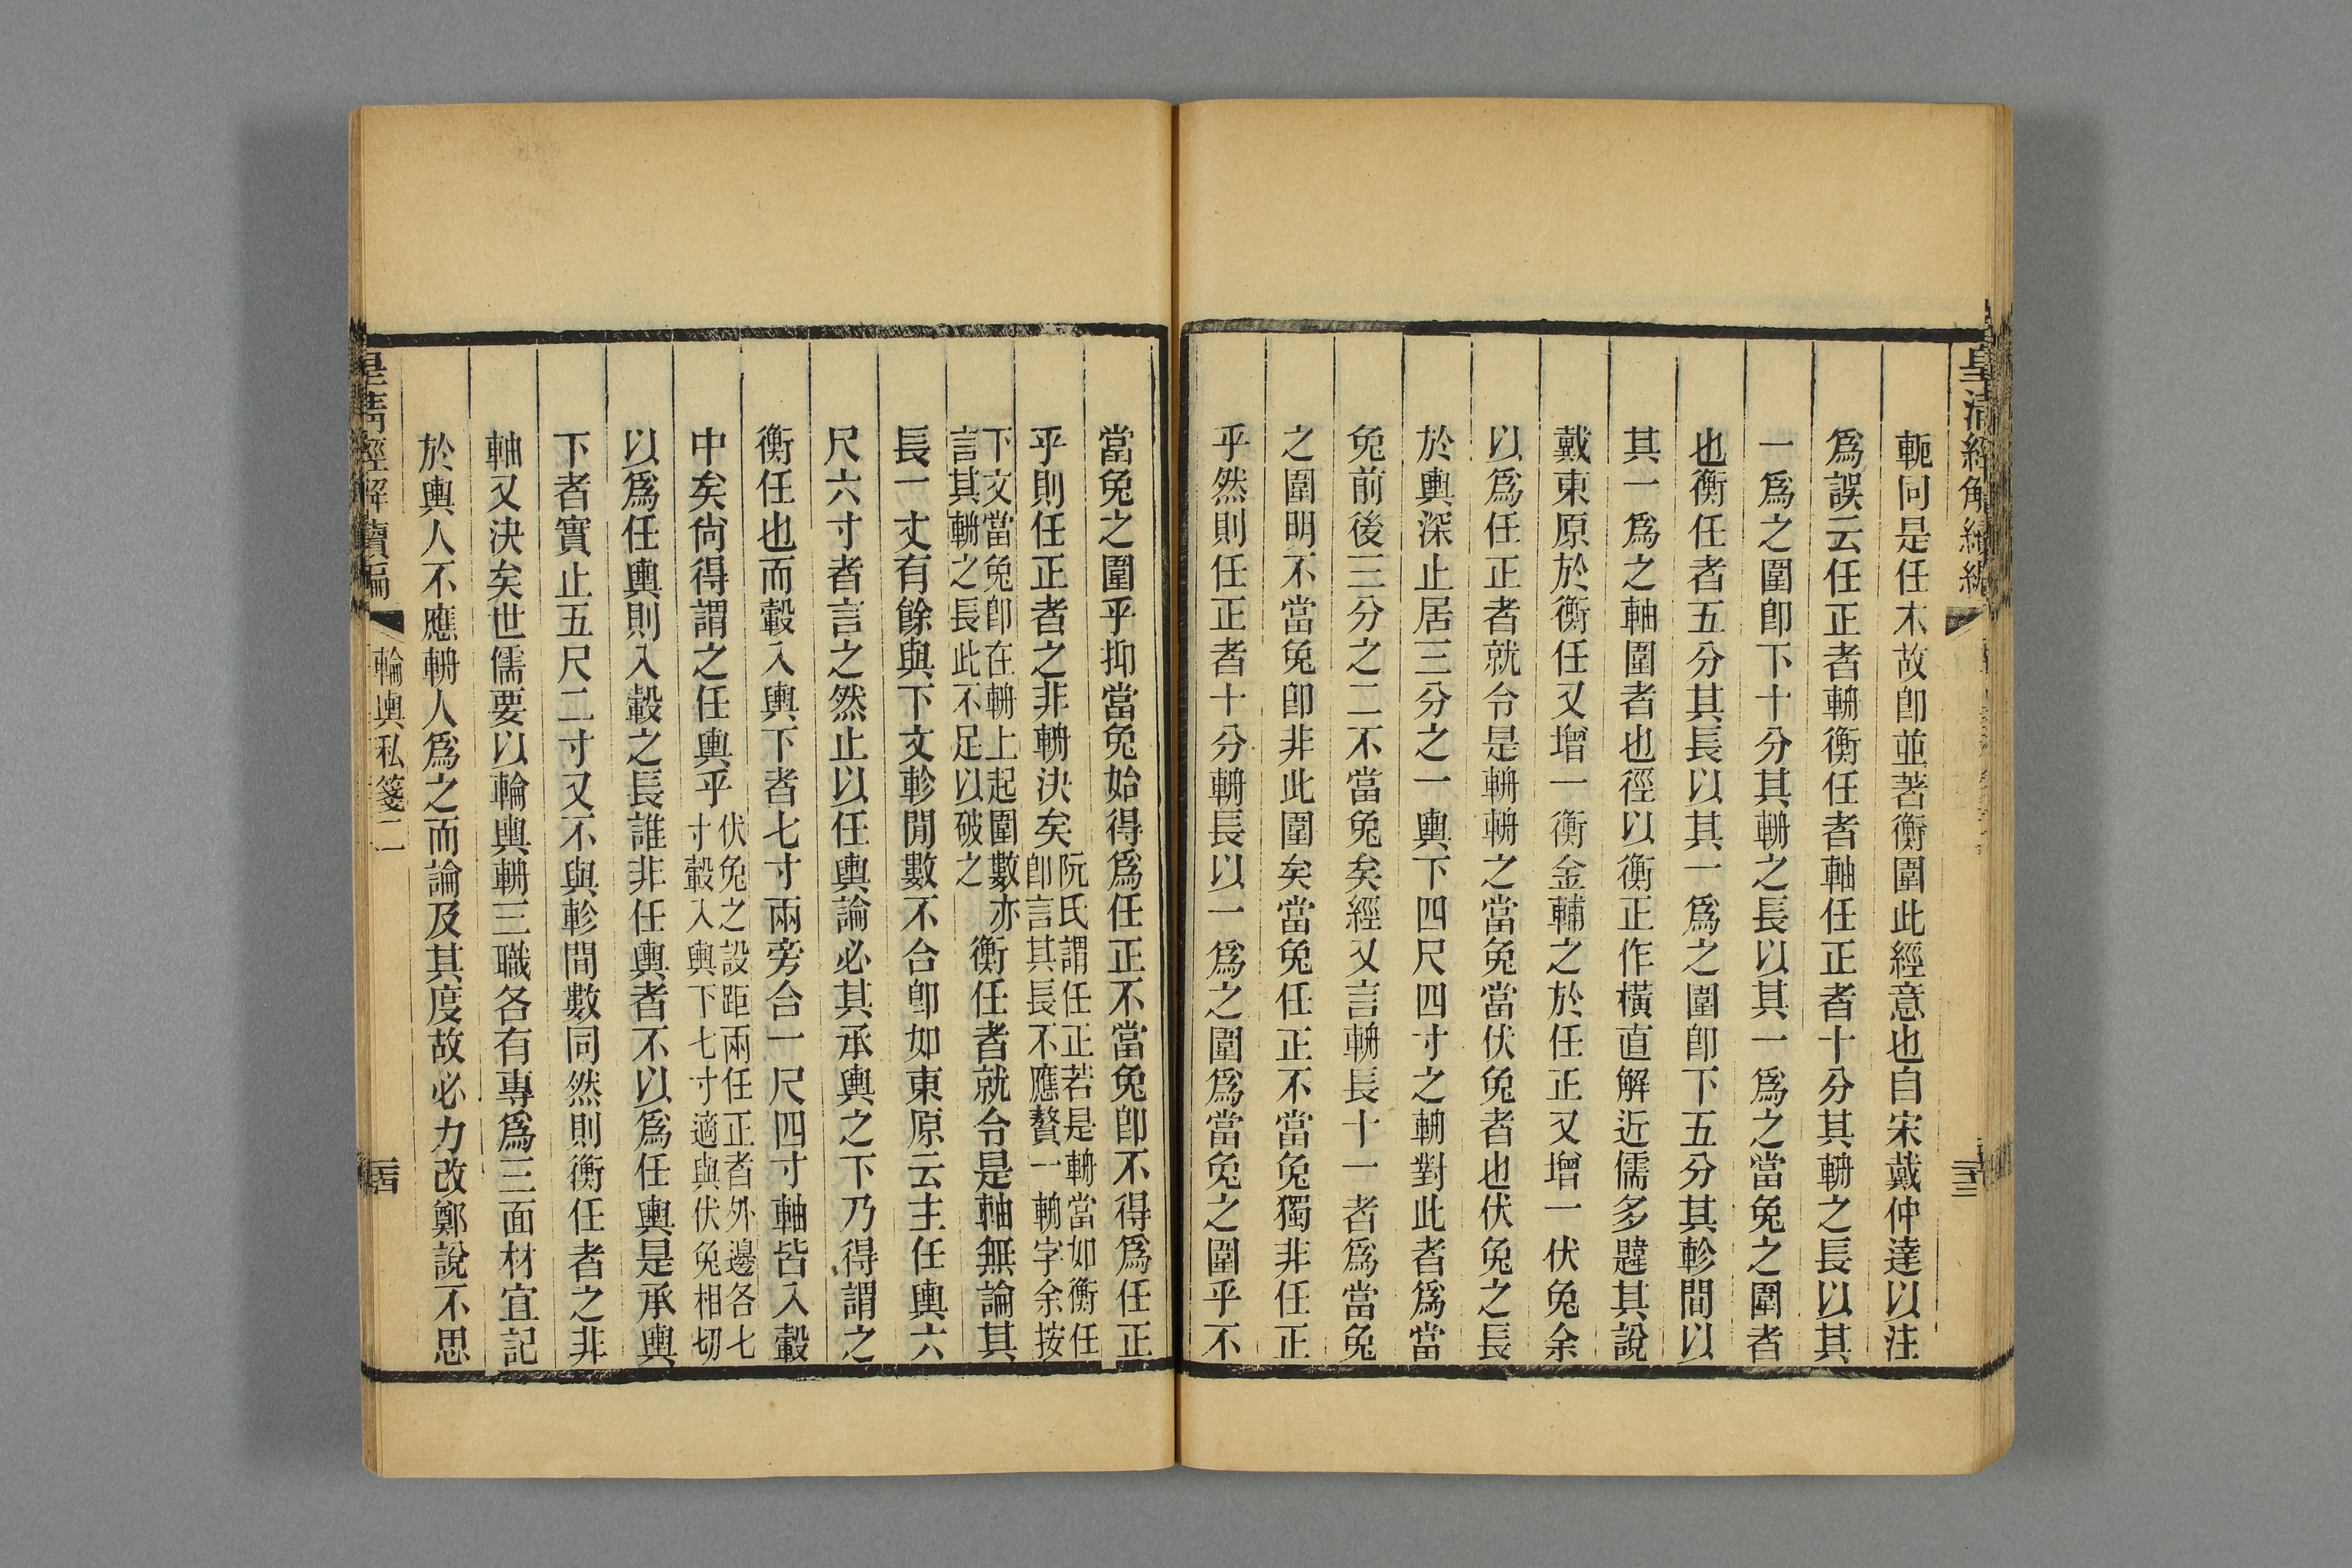 皇清經解續編
軛同是任木故卽並著衡圍此經意也自宋戴仲達以注
爲誤云任正者輈衡任者軸任正者十分其輈之長以其
一爲之圍卽下十分其輈之長以其一爲之當兔之圍者
也衡任者五分其長以其一爲之圍卽下五分其軫間以
其一爲之軸圍者也徑以衡正作橫直解近儒多韙其說
戴東原於衡任又增一衡金輔之於任正又增一伏兔余
以爲任正者就令是輈輈之當兔當伏兔者也伏兔之長
於輿深止居三分之一輿下四尺四寸之輈對此者爲當
兔前後三分之二不當兔矣經又言輈長十一者爲當兔
之圍明不當兔卽非此圍矣當兔任正不當兔獨非任正
乎然則任正者十分輈長以一爲之圍爲當兔之圍乎不
當兔之圍乎抑當兔始得爲任正不當兔卽不得爲任正
乎則任正者之非輈決矣
阮氏謂任正若是輈當如衡任
卽言其長不應贅一輈字余按
下文當兔卽在輈上起圍數亦
言其輈之長此不足以破之
衡任者就令是軸無論其
長一丈有餘與下文軫閒數不合卽如東原云主任輿六
尺六寸者言之然止以任輿論必其承輿之下乃得謂之
衡任也而轂入輿下者七寸兩旁合一尺四寸軸皆入轂
中矣尙得謂之任輿乎
伏兔之設距兩任正者外邊各七
寸轂入輿下七寸適與伏兔相切
以爲任輿則入轂之長誰非任輿者不以爲任輿是承輿
下者實止五尺二寸又不與軫間數同然則衡任者之非
軸又決矣世儒要以輪輿輈三職各有專爲三面材宜記
於輿人不應輈人爲之而論及其度故必力改鄭說不思
皇清經解續編
輪輿私箋二